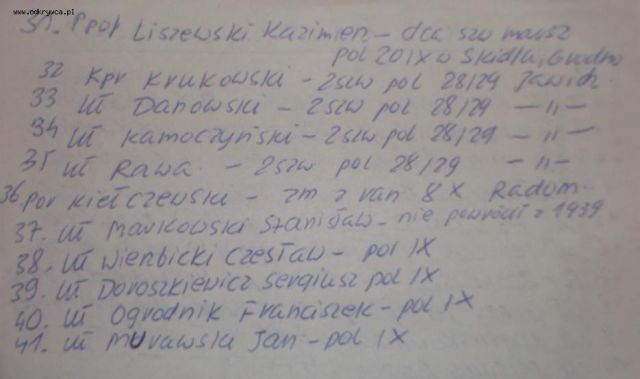 www.odkrywca.pl
31. Ppor Liszewski Kazimierz - dca szw marsz
pol 20 IX o Skidla, Grodno
32 Kpr Krukowski - 2szw pol 28/29 Jawich.
33 uł Danowski - 2szw pol 28/29 - 11 -
34 uł Kamoczyński - 2szw pol 28/29 - 11 -
35 uł Rawa - 2szw pol 28/29 - 11 -
36. por Kiełczewski - zm z ran 8 X Radom.
37. uł Markowski Stanisław - nie powrócił z 1939
38. uł Wierzbicki Czesław - pol IX
39. uł Doroszkiewicz Sergiusz pol IX
40. uł Ogrodnik Franciszek - pol IX
41. uł Murawski Jan - pol IX